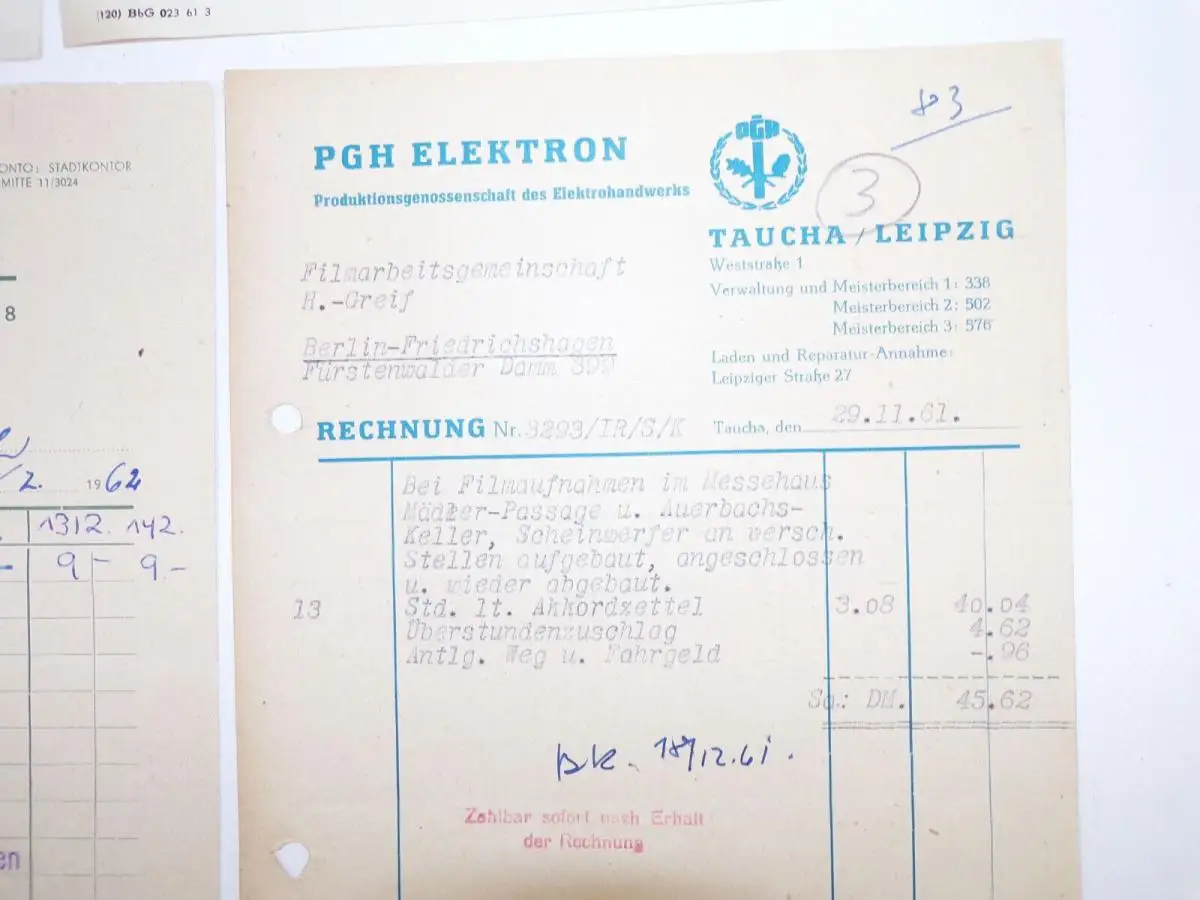 (120) BbG 023 61 3
ONTO: STADTKONTOR
MITTE 11/3024
8
2. 1962
1312. 142.
9 - 9.-
en
83
PGH ELEKTRON
Produktionsgenossenschaft des Elektrohandwerks
PGH
3
TAUCHA / LEIPZIG
Weststraße 1
Verwaltung und Meisterbereich 1: 338
Meisterbereich 2: 502
Meisterbereich 3: 576
Laden und Reparatur-Annahme:
Leipziger Straße 27
Filmarbeitsgemeinschaft
H.-Greif
Berlin-Friedrichshagen
Fürstenwalder Damm 399
RECHNUNG Nr. 3293/IR/S/K Taucha, den 29.11.61.
Bei Filmaufnahmen im Messehaus
Mädler-Passage u. Auerbachs-
Keller, Scheinwerfer an versch.
Stellen aufgebaut, angeschlossen
u. wieder abgebaut.
13 Std. lt. Akkordzettel 3.08 40.04
Überstundenzuschlag 4.62
Antlg. Weg u. Fahrgeld -.96
Sa.: DM. 45.62
12.61.
Zahlbar sofort nach Erhalt
der Rechnung